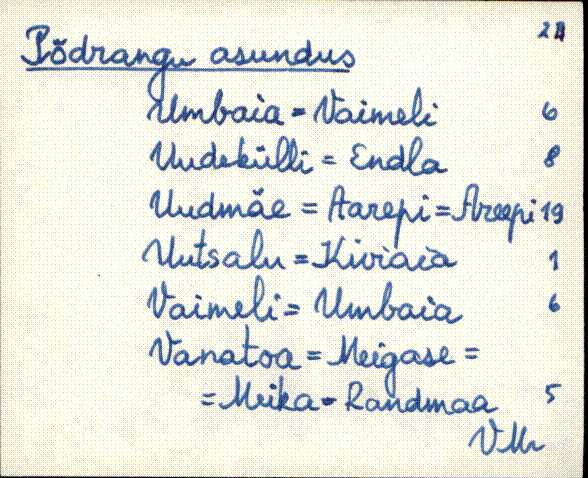 Põdrangu asundus
Umbaia = Vaimeli 6
Uudekülli = Endla 8
Uudmäe = Aarepi = Areepi 19
Uutsalu = Kiviaia 1
Vaimeli = Umbaia 6
Vanatoa = Meigase =
= Meika = Randmaa 5
VMr